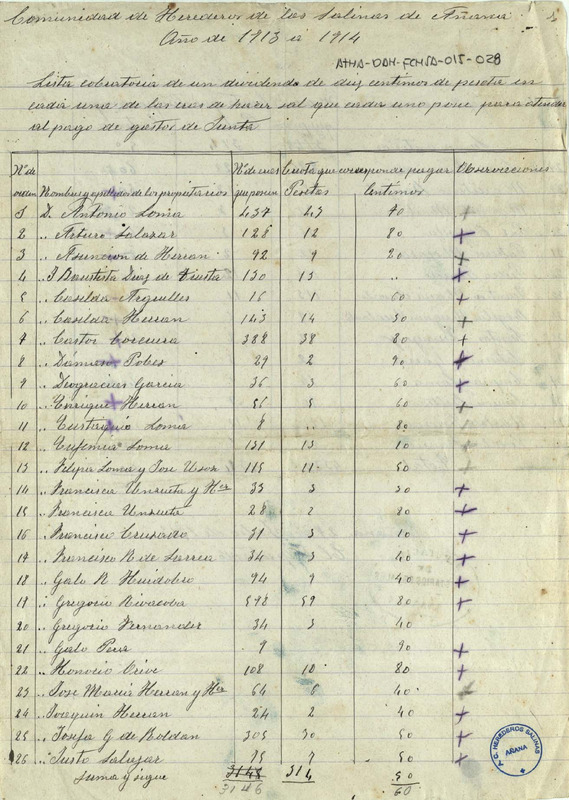 Comunidad de Herederos de las Salinas de Añana
Año de 1913 a 1914
ATHA-DAH-FCHSA-015-028
Lista cobratoria de un dividendo de diez centimos de peseta en
cada una de las eras de hacer sal que cada uno posee para atender
al pago de gastos de Junta
Nº de orden Nombres y apellidos de los propietarios Nº de eras que poseen Cuota que corresponde pagar Pesetas Centimos Observaciones
1 D. Antonio Loma 437 43 70 +
2 ,, Arturo Salazar 128 12 80 +
3 ,, Asuncion de Herran 92 9 20 +
4 ,, J Bautista Diaz de Tuesta 130 13 ,, +
5 ,, Casilda Arguelles 16 1 60 +
6 ,, Casilda Herran 143 14 30 +
7 ,, Castor Corcuera 388 38 80 +
8 ,, Dámaso Pobes 29 2 90 +
9 ,, Deogracias Garcia 36 3 60 +
10 ,, Enrique Herran 56 5 60 +
11 ,, Eustaquio Loma 8 ,, 80 +
12 ,, Eufemia Loma 131 13 10 +
13 ,, Felipa Loma y Jose Usoz 115 11 50 +
14 ,, Francisca Unzueta y Hª 33 3 30 +
15 ,, Francisca Unzueta 28 2 80 +
16 ,, Francisco Cruzado 31 3 10 +
17 ,, Francisco R. de Larrea 34 3 40 +
18 ,, Galo R Huidobro 94 9 40 +
19 ,, Gregorio Rivacoba 598 59 80 +
20 ,, Gregorio Fernandez 34 3 40
21 ,, Galo Perez 9 90 +
22 ,, Honorio Orive 108 10 80 +
23 ,, Jose Maria Herran y Hª 64 6 40 +
24 ,, Joaquin Herran 24 2 40 +
25 ,, Josefa G de Roldan 305 30 50 +
26 ,, Justo Salazar 75 7 50 +
Suma y sigue 3145 314 50
3146 60
Y C. HEREDEROS SALINAS
AÑANA